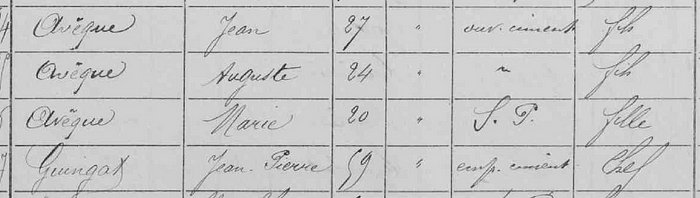 4 Avêque Jean 27 " ouv. ciment fils
5 Avêque Auguste 24 " " fils
6 Avêque Marie 20 " S. P. fille
7 Guingat Jean-Pierre 59 " emp. ciment Chef